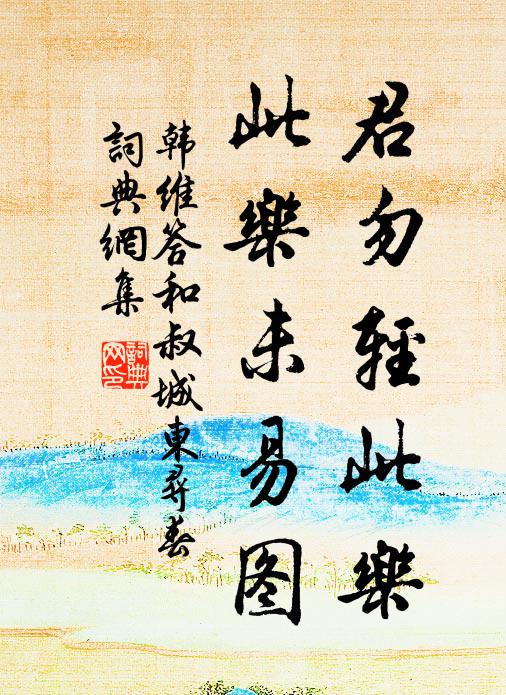 君勿輕此樂
此樂未易图
韩维答和叔城東尋春
詞典網集
詞典網印